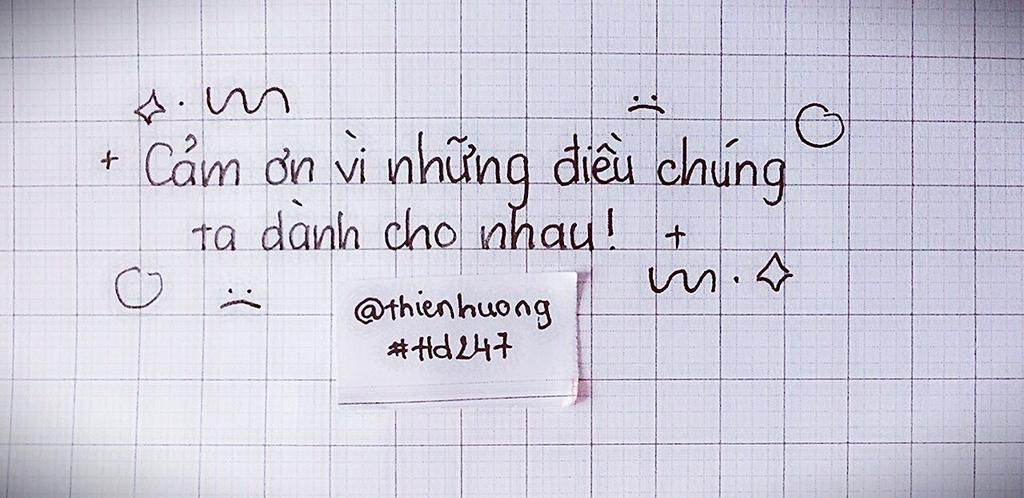 + Cảm ơn vì những điều chúng
ta dành cho nhau! +
@thienhuong
#Hd247